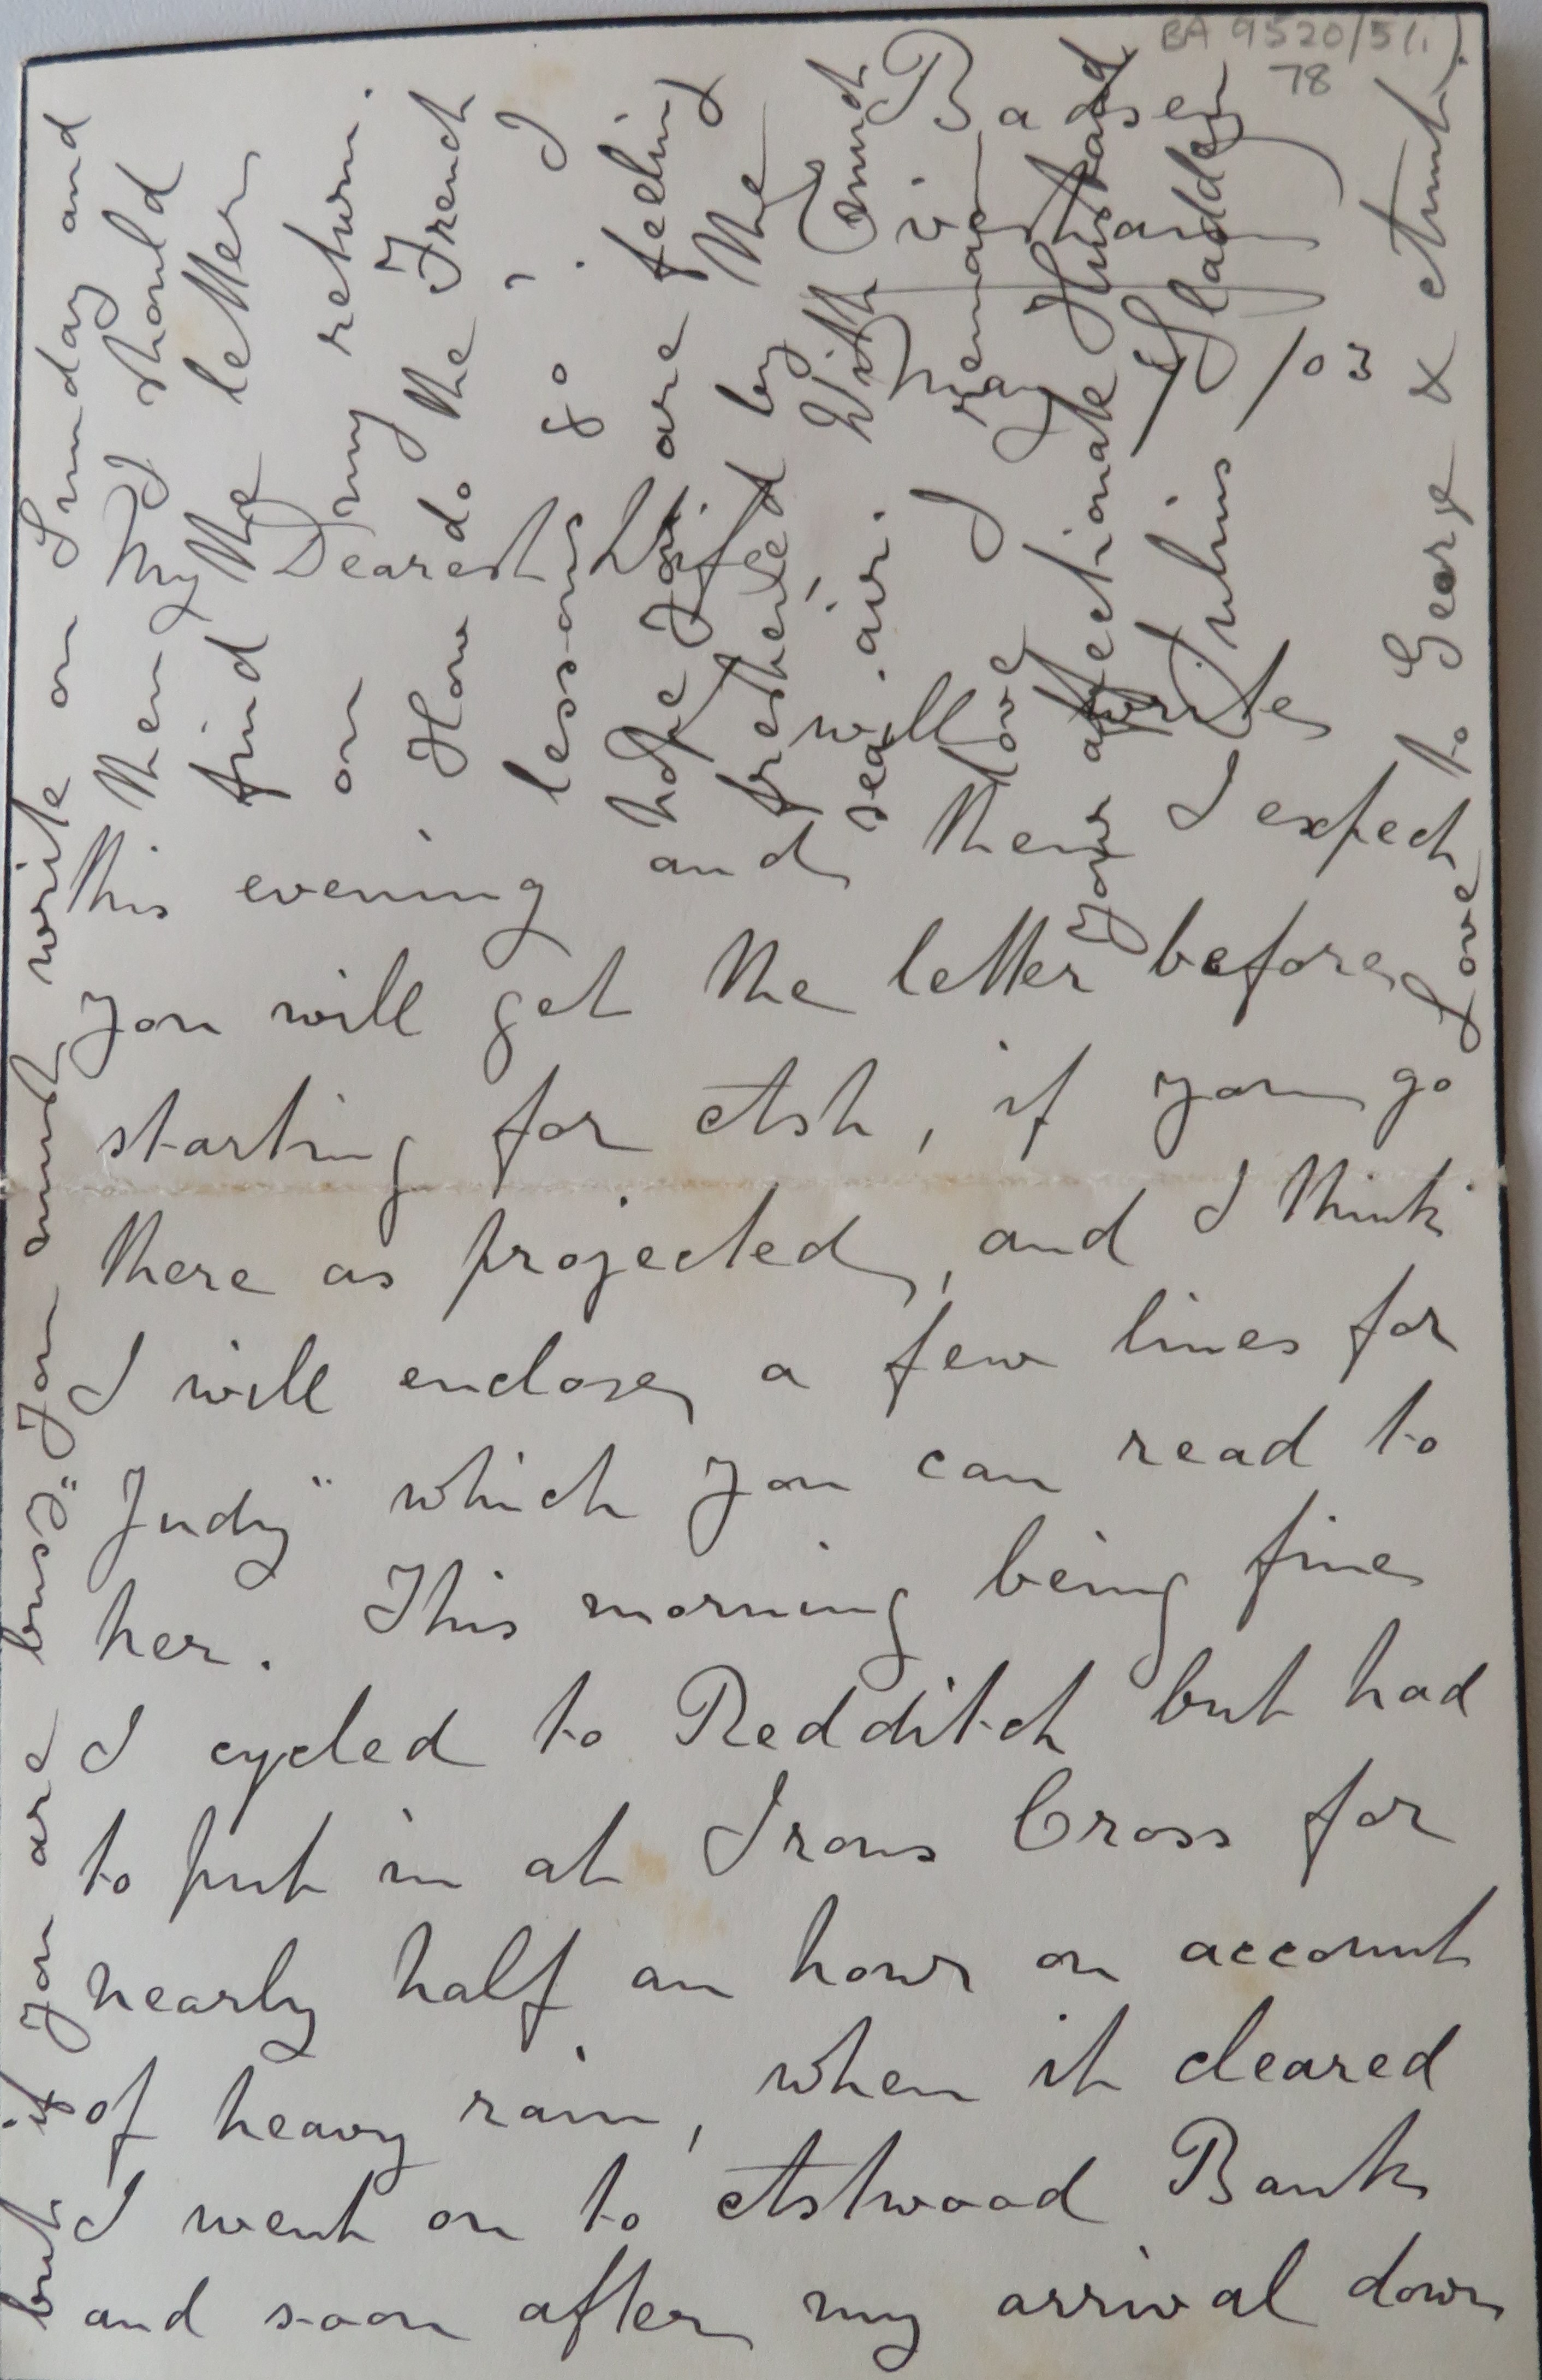 BA 9520/5(i)
78
Badsey
Evesham
May /03
My Dearest Wife,
I will write
this evening and then I expect
you will get the letter before
starting for Ash, if you go
there as projected, and I think
I will enclose a few lines for
"Judy" which you can read to
her. This morning being fine
I cycled to Redditch but had
to put in at Irons Cross for
nearly half an hour on account
of heavy rain, when it cleared
I went on to Astwood Bank
and soon after my arrival down
but if you are busy you must write on Sunday and
then I should
find the letter
on my return.
How do the French
lessons go? I
hope you are feeling
freshened by the
sea air. With much
love I remain
Your affectionate Husband
Julius Sladden
Love to George & Aunt.